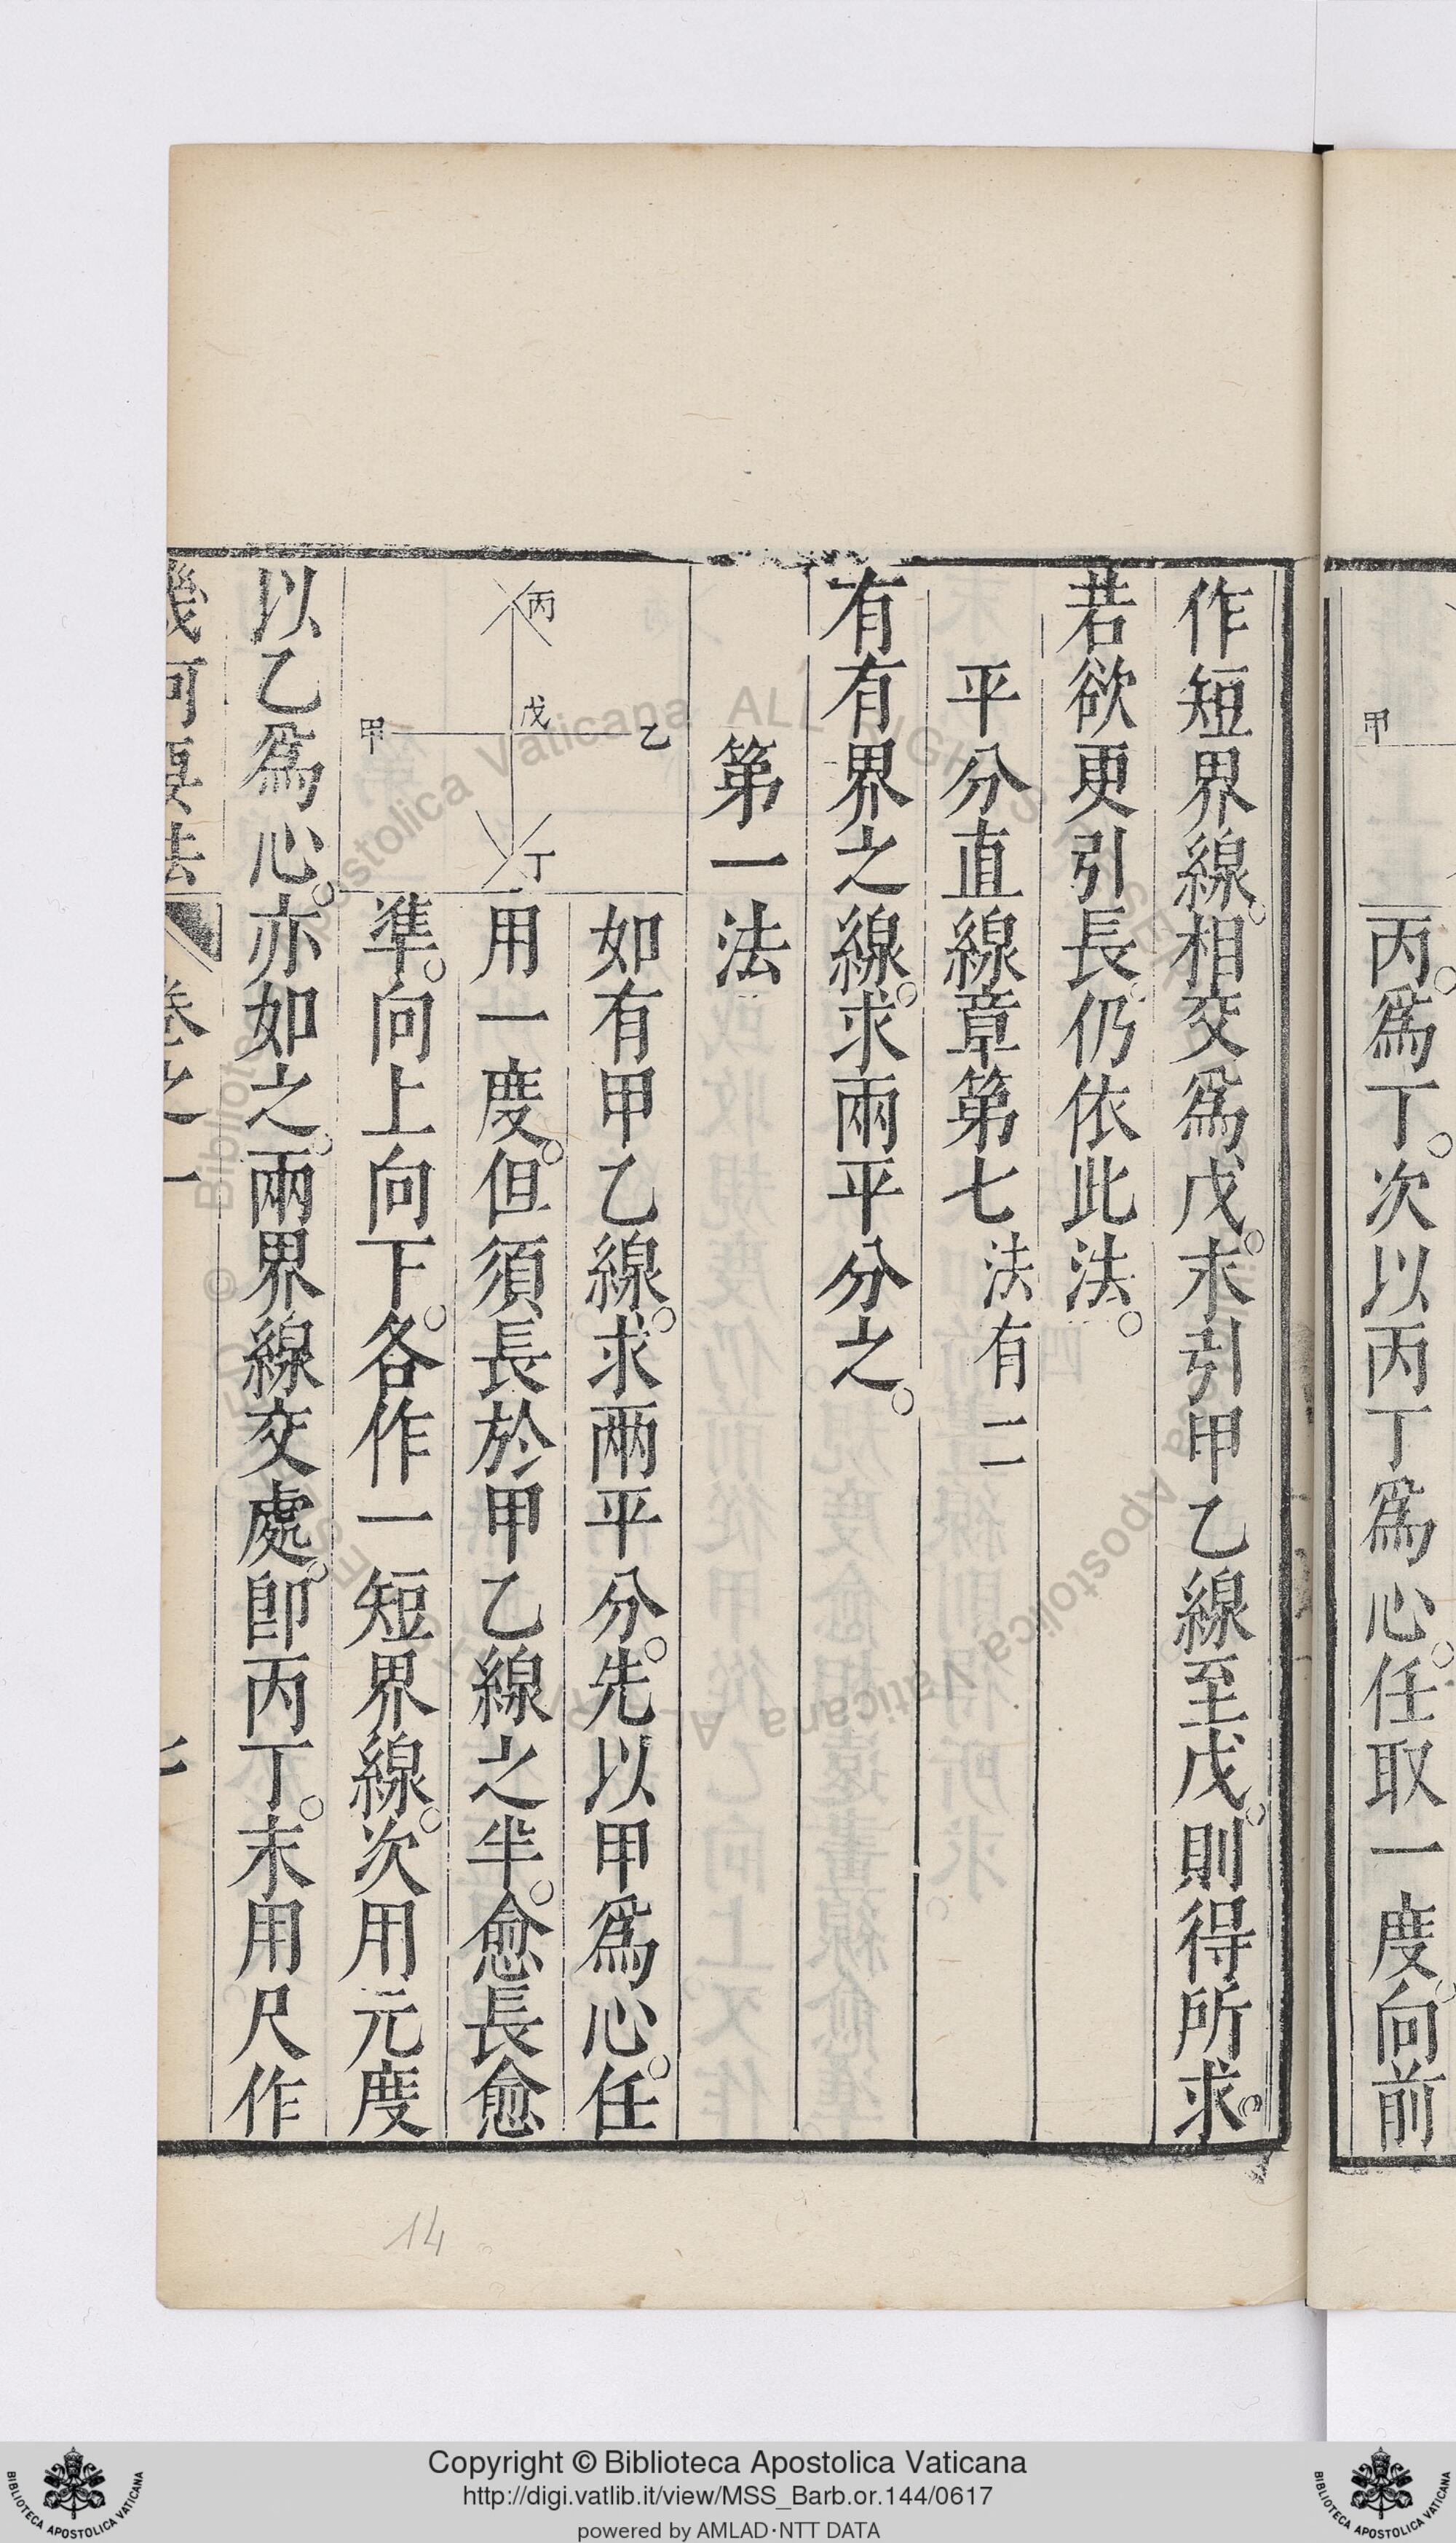 丙。爲丁。次以丙丁爲心。任取一度。向前
甲
作短界線。相交爲戊。末引甲乙線至戊。則得所求。
若欲更引長。仍依此法。
平分直線章第七法有二
有有界之線。求兩平分之。
第一法
如有甲乙線。求兩平分。先以甲爲心。任
用一度。但須長於甲乙線之半。愈長愈
準。向上向下。各作一短界線。次用元度
丙
戊
甲
乙
丁
以乙爲心。亦如之。兩界線交處。卽丙丁。末用尺作
幾何要法 卷之一 七
14
Copyright © Biblioteca Apostolica Vaticana
http://digi.vatlib.it/view/MSS_Barb.or.144/0617
powered by AMLAD·NTT DATA
BIBLIOTECA APOSTOLICA VATICANA
BIBLIOTECA APOSTOLICA VATICANA